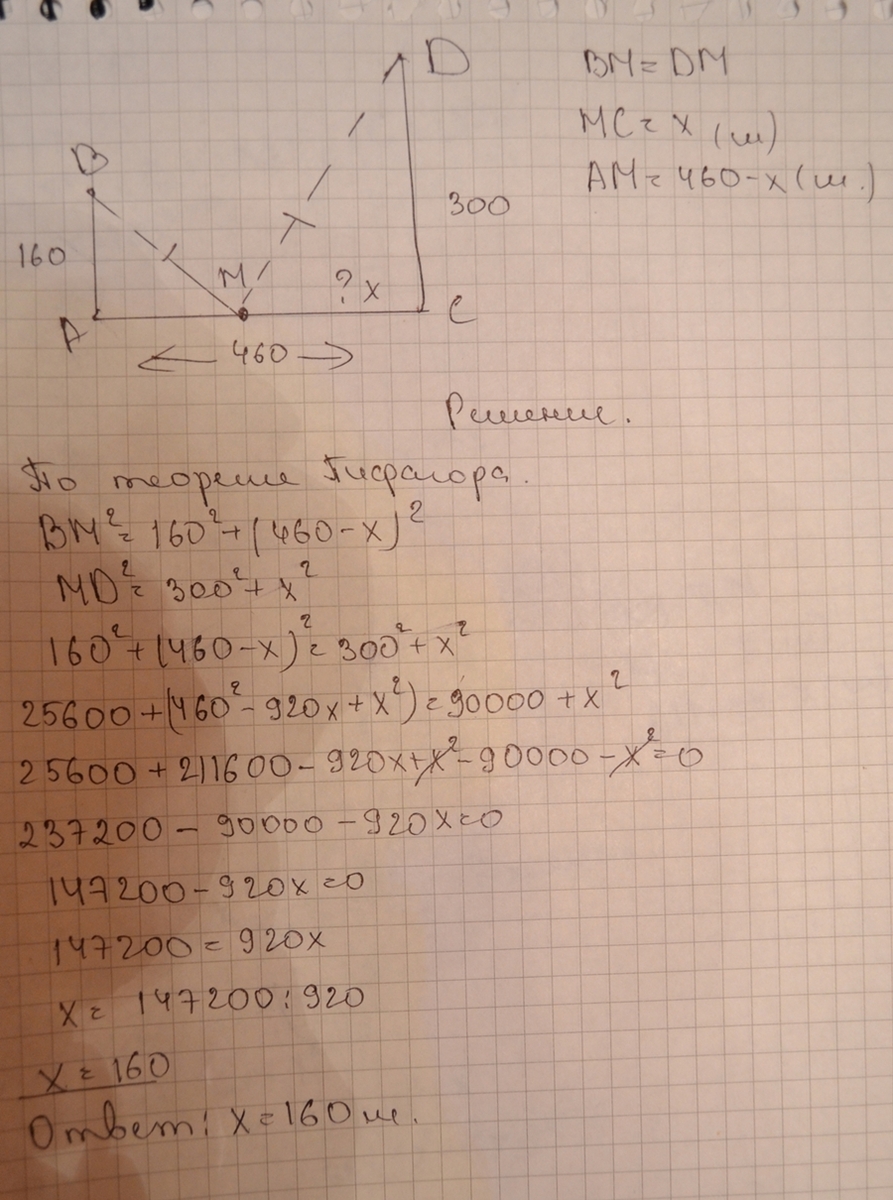 D
BM = DM
MC = x (м)
AM = 460-x (м.)
B
160
M
? x
300
A
C
460
Решение.
По теореме Пифагора.
BM² = 160² + (460-x)²
MD² = 300² + x²
160² + (460-x)² = 300² + x²
25600 + (460² - 920x + x²) = 90000 + x²
25600 + 211600 - 920x + x² - 90000 - x² = 0
237200 - 90000 - 920x = 0
147200 - 920x = 0
147200 = 920x
x = 147200 : 920
x = 160
Ответ: x = 160 м.